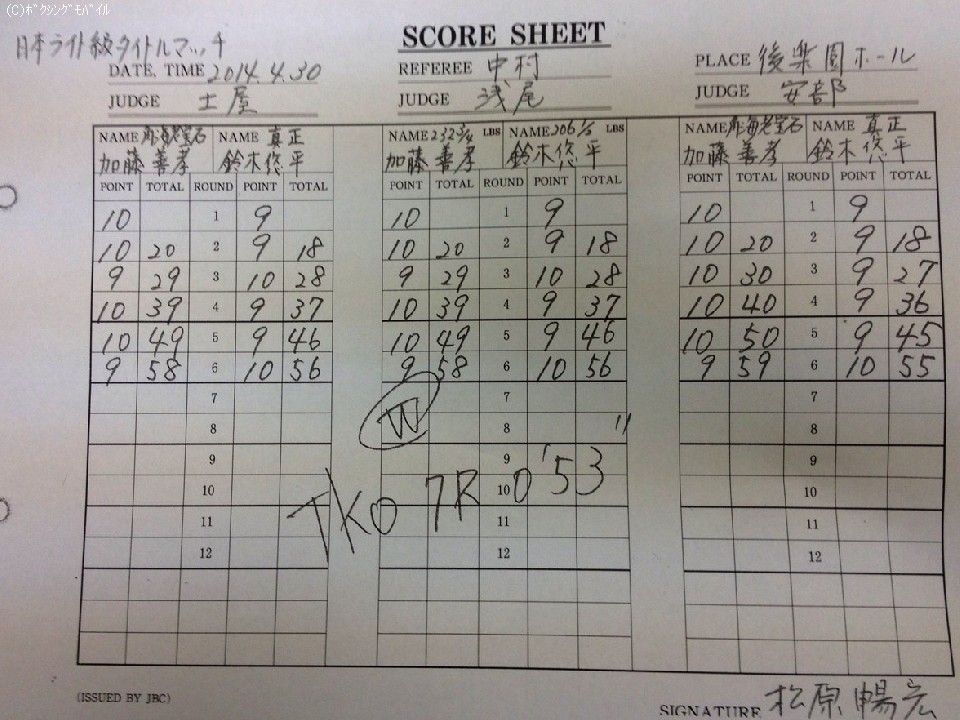 (C)ﾎﾞｸｼﾝｸﾞﾓﾊﾞｲﾙ
日本ライト級タイトルマッチ
SCORE SHEET
DATE, TIME 2014.4.30 REFEREE 中村 PLACE 後楽園ホール
JUDGE 土屋 JUDGE 浅尾 JUDGE 安部
NAME 角海老宝石 NAME 真正 NAME LBS NAME LBS NAME 角海老宝石 NAME 真正
加藤善孝 鈴木悠平 加藤善孝 鈴木悠平 加藤善孝 鈴木悠平
POINT TOTAL ROUND POINT TOTAL POINT TOTAL ROUND POINT TOTAL POINT TOTAL ROUND POINT TOTAL
10 1 9 10 1 9 10 1 9
10 20 2 9 18 10 20 2 9 18 10 20 2 9 18
9 29 3 10 28 9 29 3 10 28 10 30 3 9 27
10 39 4 9 37 10 39 4 9 37 10 40 4 9 36
10 49 5 9 46 10 49 5 9 46 10 50 5 9 45
9 58 6 10 56 9 58 6 10 56 9 59 6 10 55
7 7 7
W
8 8 8
9 9 9
TKO 7R 0'53"
10 10 10
11 11 11
12 12 12
(ISSUED BY JBC)
SIGNATURE 松原暢宏